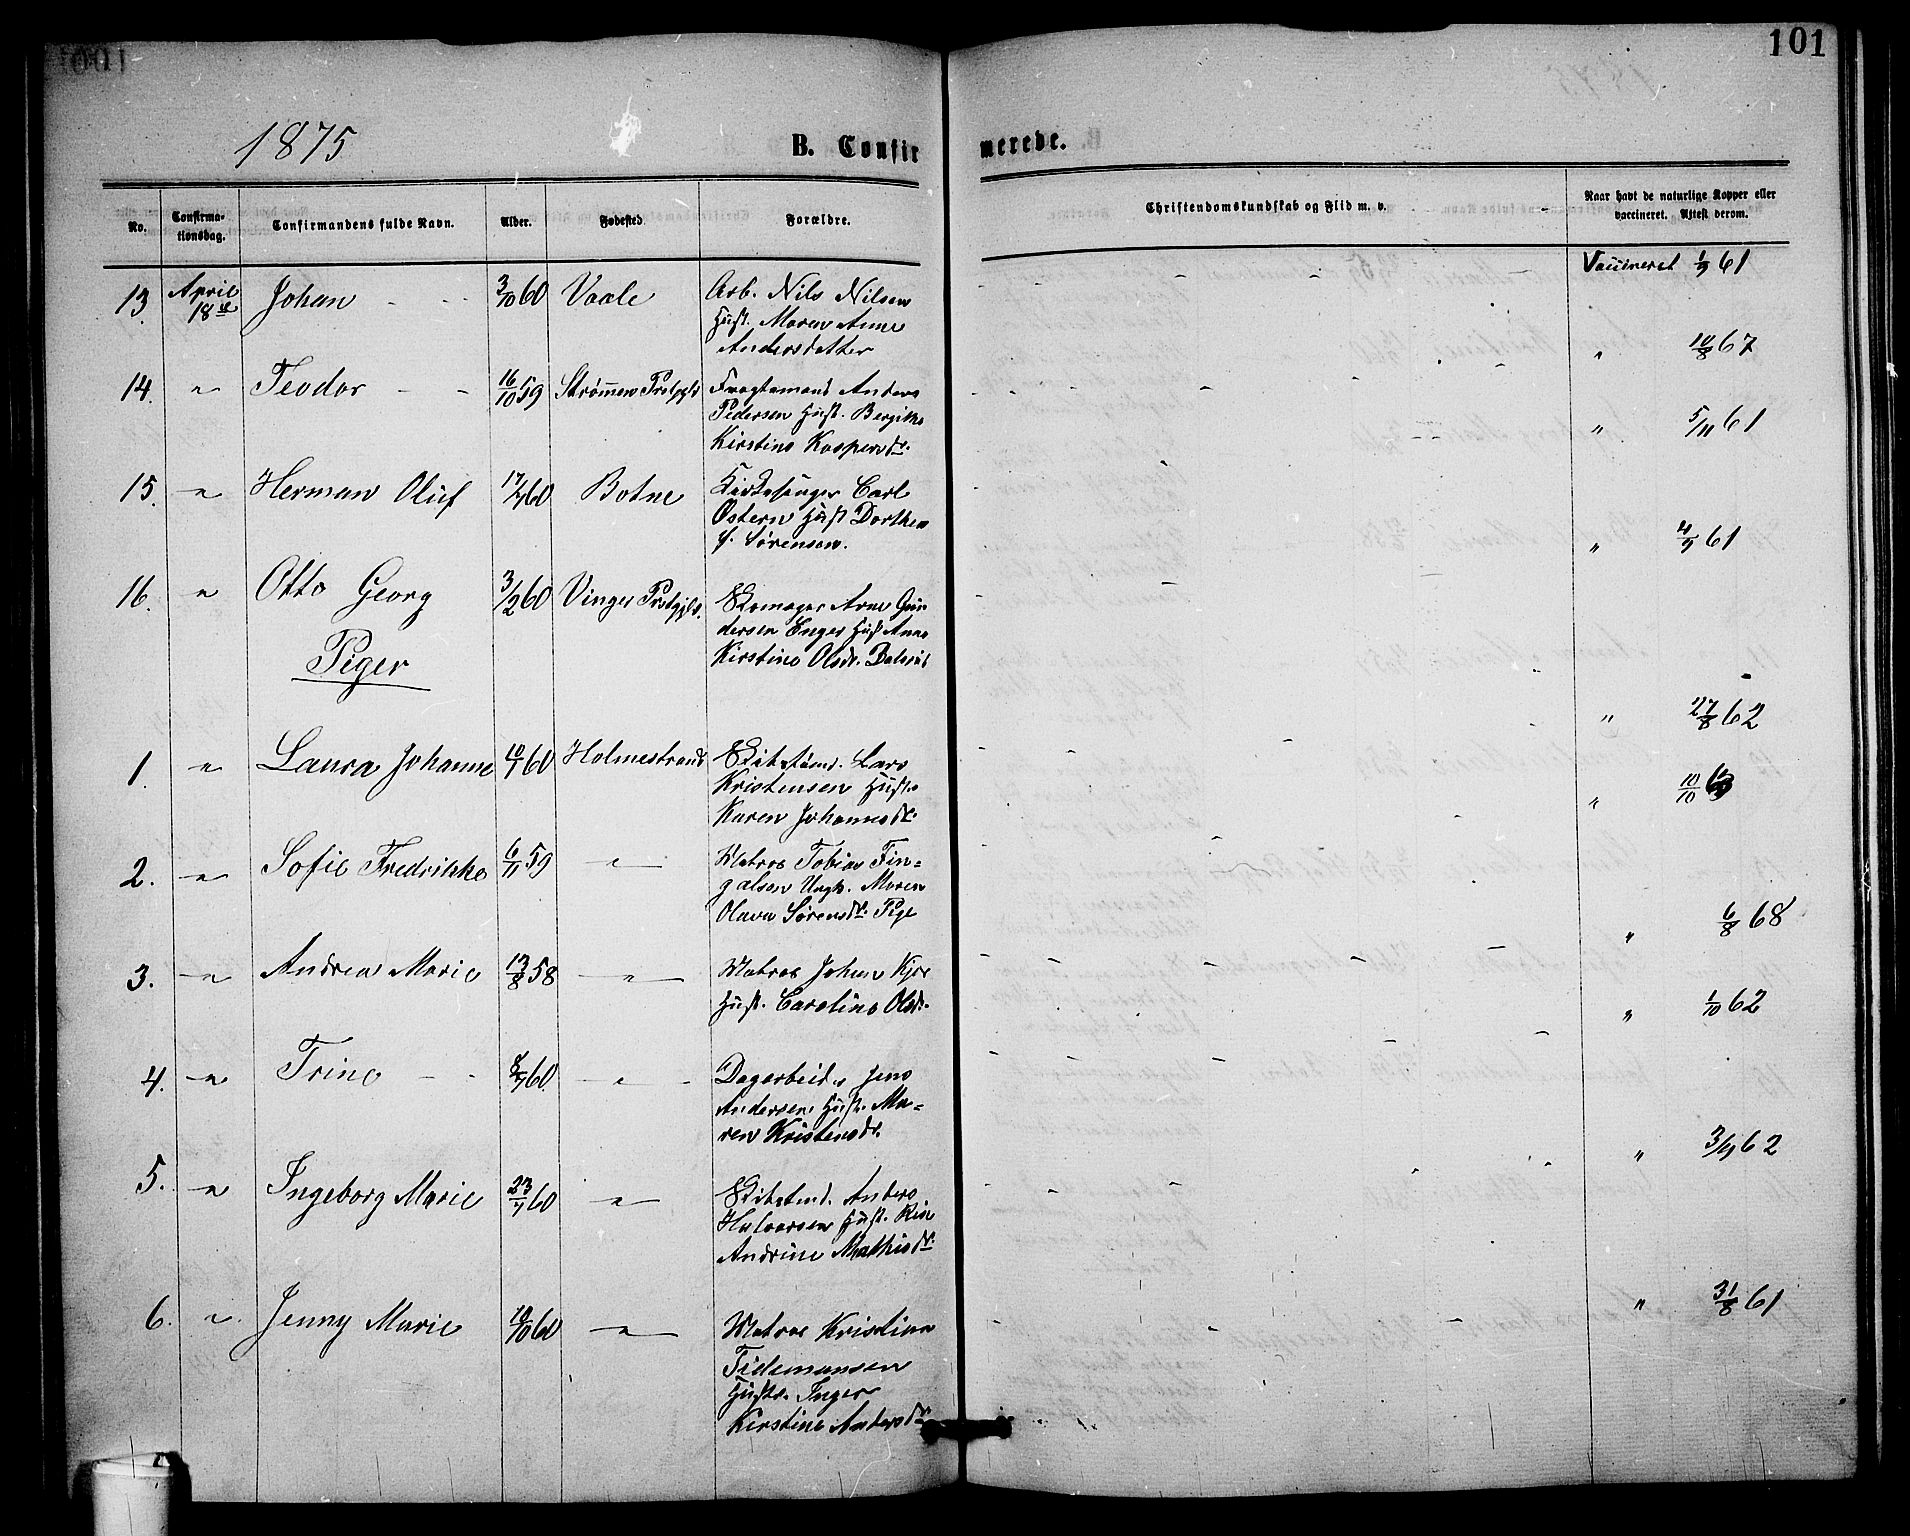 101
1875
B. Confirmerede.
No.
Confirmationsdag.
Confirmandens fulde Navn.
Alder.
Fødested
Forældre.
Christendomskundskab og Flid m. v.
Naar havt de naturlige Kopper eller
vaccineret. Attest derom.
13. April 18de Johan - - 3/10 60 Vaale Arb. Nils Nilsen
Hust. Maren Anne
Andersdatter
Vaccineret 1/9 61
14. " Teodor - - 16/10 59 Strømmen Prstgjld Fragtemand Anders
Pedersen Hust. Bergithe
Kirstine Kaspersdr.
" 10/8 67
15. " Herman Oluf 17/7 60 Botne Kirkesanger Carl
Østern Hust Dorthea
f. Sørensen.
" 5/11 61
16. " Otto Georg 3/2 60 Vinger Prstgjld. Skomager Arne Gun
dersen Enger Hust Anne
Kirstine Olsdr.
" 4/9 61
Piger
1. " Laura Johanne 10/1 60 Holmestrand Skibstømd. Lars
Kristensen Hustr.
Karen Johannesdr.
" 27/8 62
2. " Sofie Fredrikke 6/11 59 " Matros Tobias Fin-
galsen Ungk. Maren
Olava Sørensdr. Pige
" 10/10 63
3. " Andrea Marie 13/8 58 " Matros Johan Kjær
Hust. Caroline Olsdr.
" 6/8 68
4. " Trine - - 8/7 60. " Dagarbeider Jens
Andersen Hustr. Ma-
ren Kristensdr.
" 1/10 62
5. " Ingeborg Marie 23/7 60 " Skibstmd. Anders
Halvorsen Hust. Karen
Andrine Mathisdr.
" 3/9 62
6. " Jenny Marie 10/10 60 " Matros Kristian
Tidemansen
Hustr. Inger
Kirstine Andersdr
" 31/8 61